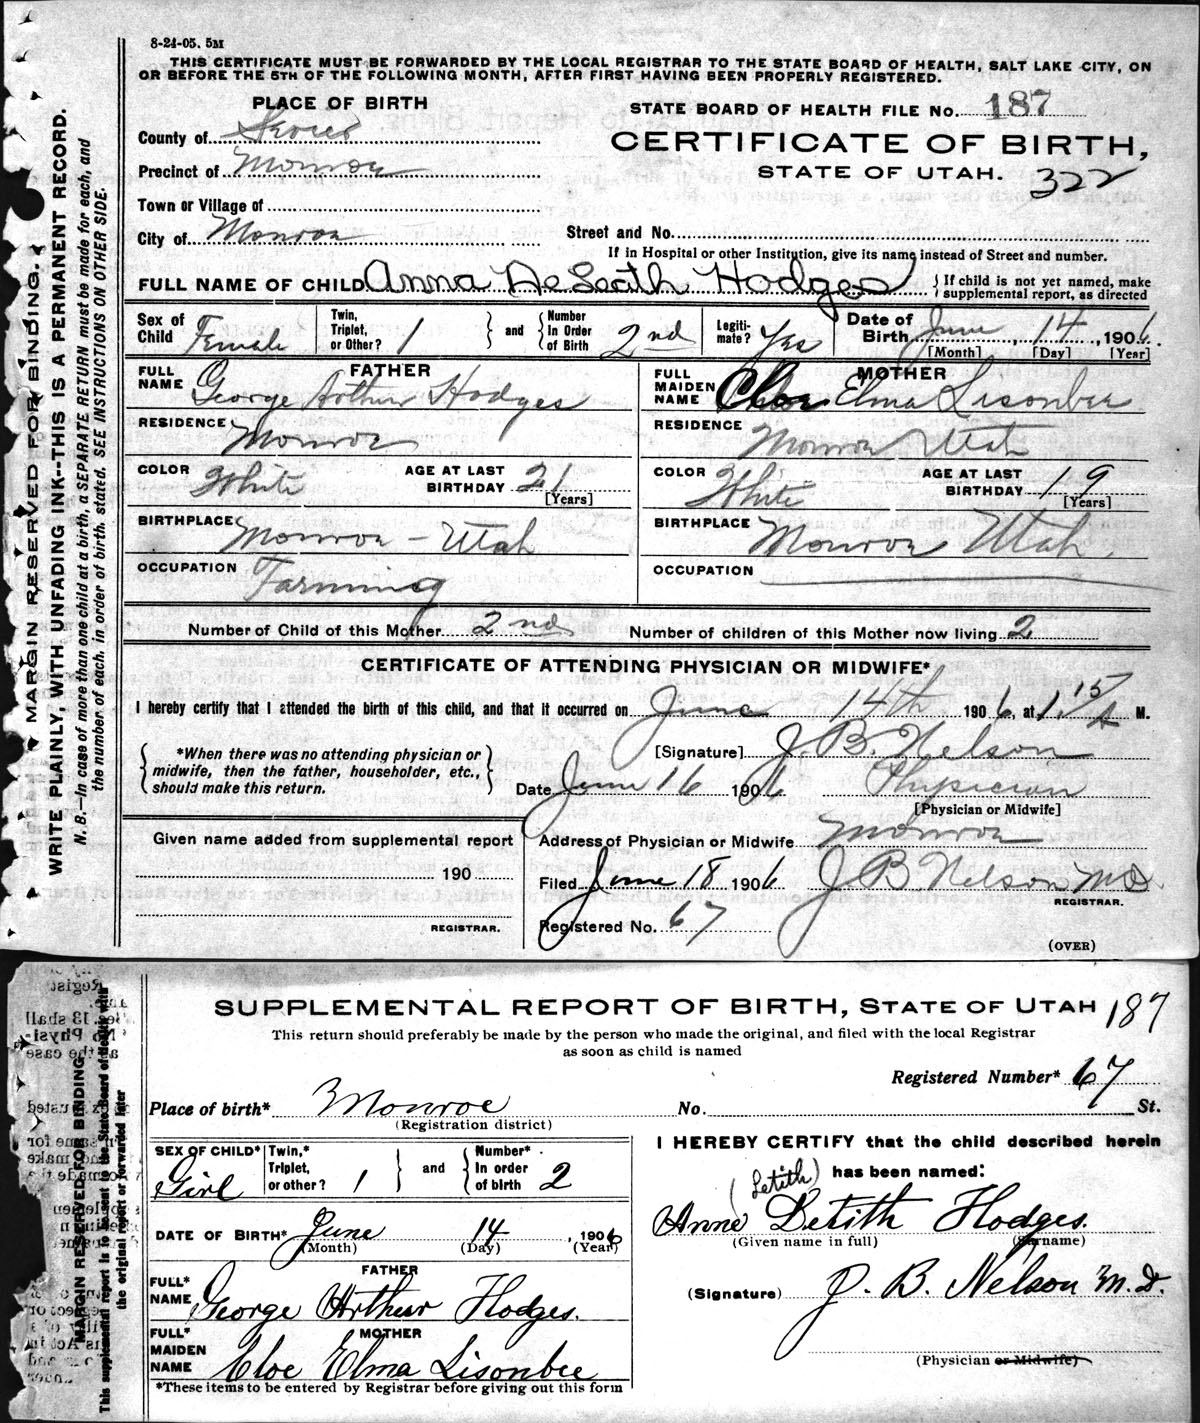 8-24-05. 5M
THIS CERTIFICATE MUST BE FORWARDED BY THE LOCAL REGISTRAR TO THE STATE BOARD OF HEALTH, SALT LAKE CITY, ON
OR BEFORE THE 5TH OF THE FOLLOWING MONTH, AFTER FIRST HAVING BEEN PROPERLY REGISTERED.
PLACE OF BIRTH
STATE BOARD OF HEALTH FILE No. 187
County of Sevier
CERTIFICATE OF BIRTH,
Precinct of Monroe
STATE OF UTAH. 322
Town or Village of
City of Monroe
Street and No.
If in Hospital or other Institution, give its name instead of Street and number.
FULL NAME OF CHILD Anna Hodges
{ If child is not yet named, make supplemental report, as directed
Sex of Child Female
Twin, Triplet, or Other? 1 } and { Number In Order of Birth 2nd
Legitimate? Yes
Date of Birth June, 14, 1906.
[Month] [Day] [Year]
FATHER
FULL NAME George Arthur Hodges
RESIDENCE Monroe
COLOR White AGE AT LAST BIRTHDAY 21
[Years]
BIRTHPLACE Monroe - Utah
OCCUPATION Farming
MOTHER
FULL MAIDEN NAME Cloe Elma Lisonbee
RESIDENCE Monroe Utah
COLOR White AGE AT LAST BIRTHDAY 19
[Years]
BIRTHPLACE Monroe Utah
OCCUPATION
Number of Child of this Mother 2nd Number of children of this Mother now living 2
CERTIFICATE OF ATTENDING PHYSICIAN OR MIDWIFE*
I hereby certify that I attended the birth of this child, and that it occurred on June 14th 1906, at 1.15 A M.
{ *When there was no attending physician or midwife, then the father, householder, etc., should make this return. }
[Signature] J. B. Nelson
Date June 16 1906 Physician
[Physician or Midwife]
Given name added from supplemental report
190
REGISTRAR.
Address of Physician or Midwife Monroe
Filed June 18 1906 J. B. Nelson MD
REGISTRAR.
Registered No. 67
(OVER)
MARGIN RESERVED FOR BINDING.
WRITE PLAINLY, WITH UNFADING INK--THIS IS A PERMANENT RECORD.
N. B.—In case of more than one child at a birth, a SEPARATE RETURN must be made for each, and
the number of each, in order of birth, stated. SEE INSTRUCTIONS ON OTHER SIDE.
SUPPLEMENTAL REPORT OF BIRTH, STATE OF UTAH 187
This return should preferably be made by the person who made the original, and filed with the local Registrar
as soon as child is named
Registered Number* 67
Place of birth* Monroe No. St.
(Registration district)
SEX OF CHILD* Girl
Twin,* Triplet, or other? 1 } and { Number* In order of birth 2
DATE OF BIRTH* June 14, 1906
(Month) (Day) (Year)
FATHER
FULL* NAME George Arthur Hodges.
MOTHER
FULL* MAIDEN NAME Cloe Elma Lisonbee
*These items to be entered by Registrar before giving out this form
I HEREBY CERTIFY that the child described herein
has been named:
(Letith)
Anne Letith Hodges.
(Given name in full) (Surname)
(Signature) J. B. Nelson M.D.
(Physician or Midwife)
MARGIN RESERVED FOR BINDING
This supplemental report is to be sent to the State Board of Health with
the original report or forwarded later